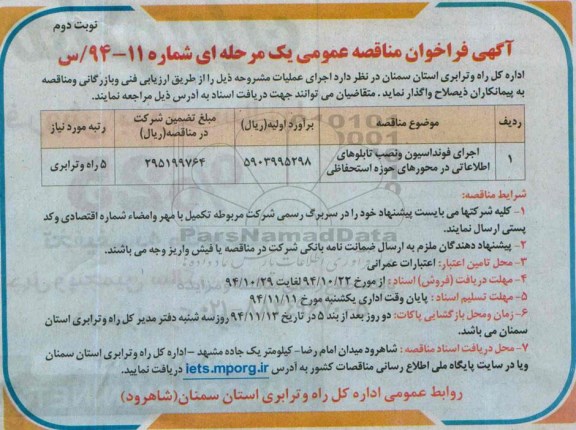 نوبت دوم
آگهی فراخوان مناقصه عمومی یک مرحله ای شماره ۱۱-۹۴/س
اداره کل راه وترابری استان سمنان در نظر دارد اجرای عملیات مشروحه ذیل را از طریق ارزیابی فنی وبازرگانی ومناقصه
به پیمانکاران ذیصلاح واگذار نماید . متقاضیان می توانند جهت دریافت اسناد به آدرس ذیل مراجعه نمایند.
ردیف موضوع مناقصه براورد اولیه(ریال) مبلغ تضمین شرکت در مناقصه(ریال) رتبه مورد نیاز
۱ اجرای فونداسیون ونصب تابلوهای اطلاعاتی در محورهای حوزه استحفاظی ۵۹۰۳۹۹۵۲۹۸ ۲۹۵۱۹۹۷۶۴ ۵ راه وترابری
شرایط مناقصه:
۱- کلیه شرکتها می بایست پیشنهاد خود را در سربرگ رسمی شرکت مربوطه تکمیل با مهر وامضاء شماره اقتصادی وکد
پستی ارسال نمایند.
۲- پیشنهاد دهندگان ملزم به ارسال ضمانت نامه بانکی شرکت در مناقصه یا فیش واریز وجه می باشند.
۳- محل تامین اعتبار: اعتبارات عمرانی
۴- مهلت دریافت (فروش) اسناد : از مورخ ۹۴/۱۰/۲۲ لغایت ۹۴/۱۰/۲۹
۵- مهلت تسلیم اسناد : پایان وقت اداری یکشنبه مورخ ۹۴/۱۱/۱۱
۶- زمان ومحل بازگشایی پاکات: دو روز بعد از بند ۵ در تاریخ ۹۴/۱۱/۱۳ روز سه شنبه دفتر مدیر کل راه وترابری استان
سمنان می باشد.
۷- محل دریافت اسناد مناقصه : شاهرود میدان امام رضا- کیلومتر یک جاده مشهد -اداره کل راه وترابری استان سمنان
ویا در سایت پایگاه ملی اطلاع رسانی مناقصات کشور به آدرس iets.mporg.ir دریافت نمایید.
روابط عمومی اداره کل راه وترابری استان سمنان(شاهرود)
ParsNamadData